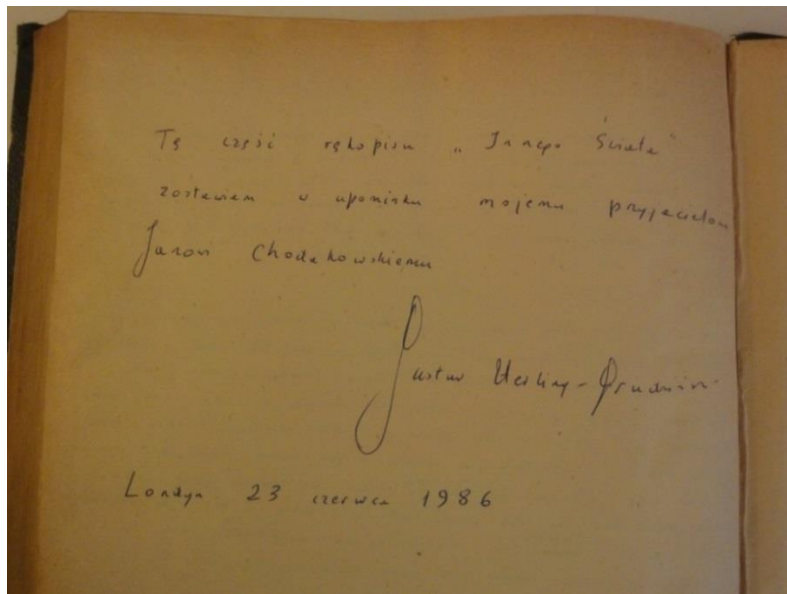 Tę część rękopisu „Innego Świata"
zostawiam w upominku mojemu przyjacielowi
Janowi Chodakowskiemu
Gustaw Herling-Grudziński
Londyn 23 czerwca 1986